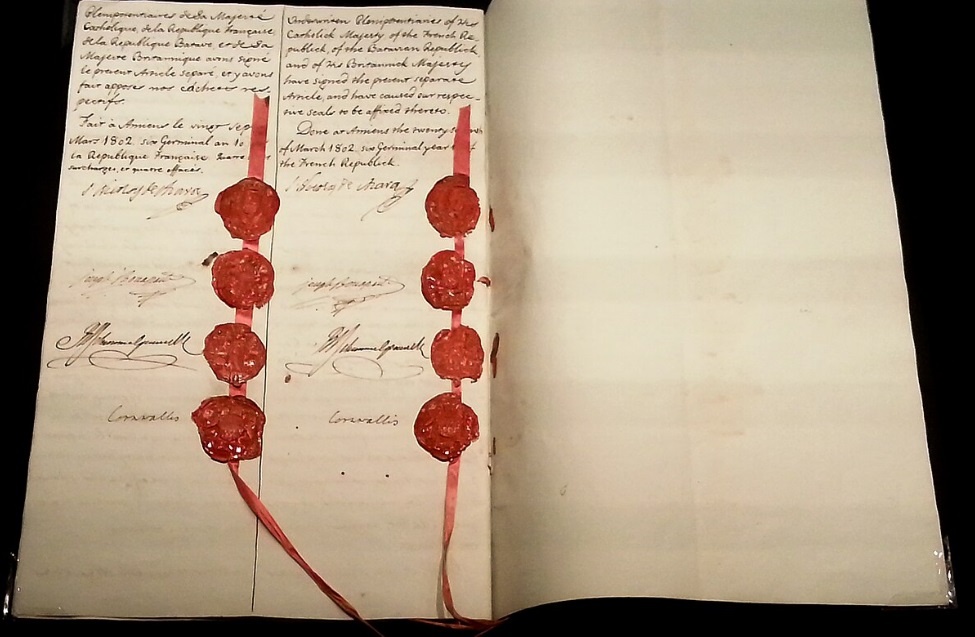 Plenipotentiaires de Sa Majesté
Catholique, de la Republique Française
de la Republique Batave, et de Sa
Majesté Britannique avons signé
le present Article separé, et y avons
fait apposer nos cachets res-
pectifs.
Fait à Amiens le vingt sept
Mars 1802. six Germinal an 10
la Republique Française. quatre
surcharges, et quatre effacés.
J. Nicolas de Azara
Joseph Bonaparte
R J Schimmelpenninck
Cornwallis
Underwritten Plenipotentiaries of His
Catholick Majesty of the French Re-
publick, of the Batavian Republick
and of His Britannick Majesty
have signed the present separate
Article, and have caused our respec-
tive seals to be affixed thereto.
Done at Amiens the twenty
of March 1802. six Germinal year
the French Republick.
J. Nicolas de Azara
Joseph Bonaparte
R J Schimmelpenninck
Cornwallis